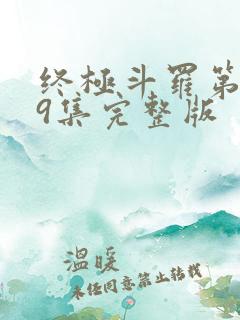 终极斗罗第
9集完整版
温暖
未经同意禁止转载